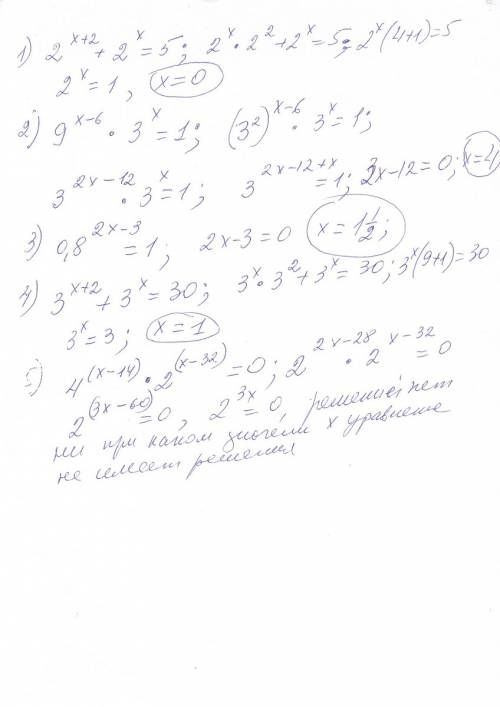 1) 2^{x+2} + 2^x = 5; 2^x · 2^2 + 2^x = 5; 2^x(4+1) = 5
2^x = 1, x = 0
2) 9^{x-6} · 3^x = 1; (3^2)^{x-6} · 3^x = 1;
3^{2x-12} · 3^x = 1; 3^{2x-12+x} = 1; 3x-12 = 0; x = 4
3) 0,8^{2x-3} = 1; 2x-3 = 0 x = 1 1/2;
4) 3^{x+2} + 3^x = 30; 3^x · 3^2 + 3^x = 30; 3^x(9+1) = 30
3^x = 3; x = 1
5) 4^{(x-14)} · 2^{(x-32)} = 0; 2^{2x-28} · 2^{x-32} = 0
2^{(3x-60)} = 0, 2^{3x} = 0, решений нет
ни при каком значени x уравнение
не имеет решения